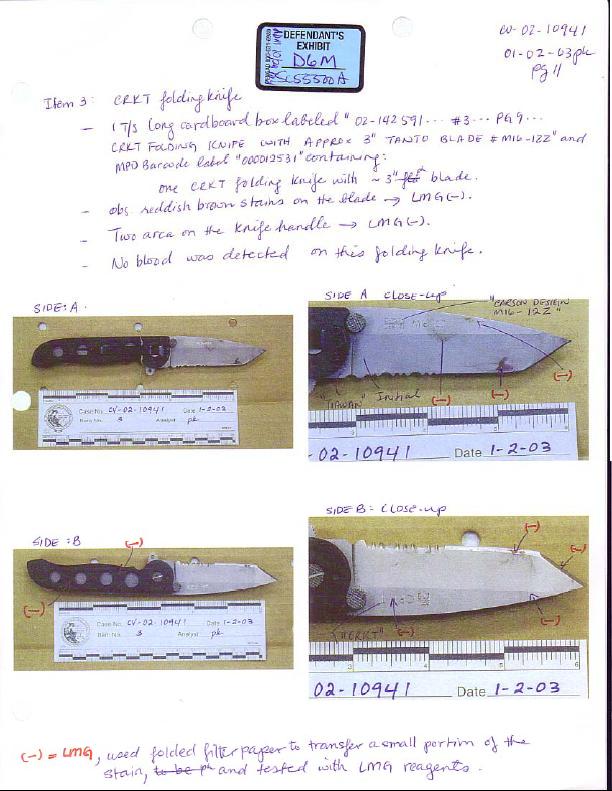 CV-02-10941
01-02-03 pk
Pg 11
DEFENDANT'S
EXHIBIT
D6M
SC55500A
Item 3: CRKT folding knife
- 1 T/s long cardboard box labeled "02-142591... #3... PG9...
CRKT FOLDING KNIFE WITH APPROX 3" TANTO BLADE #M16-12Z" and
MPD Barcode label "000012531" containing:
one CRKT folding knife with ~3" blade.
- obs. reddish brown stains on the blade → LMG(-).
- Two area on the knife handle → LMG(-).
- No blood was detected on this folding knife.
SIDE: A
SIDE A CLOSE-UP
"CARSON DESIGN
M16-12Z"
(-)
"TAIWAN" Initial (-) (-)
Case No. CV-02-10941 Date 1-2-03
Item No. 3 Analyst pk
02-10941 Date 1-2-03
SIDE: B
SIDE B: CLOSE-UP
(-)
(-)
(-)
(-)
(-)
(-)
"CRKT"
Case No. CV-02-10941 Date 1-2-03
Item No. 3 Analyst pk
02-10941 Date 1-2-03
(-) = LMG, used folded filter paper to transfer a small portion of the
stain, to be pk and tested with LMG reagents.